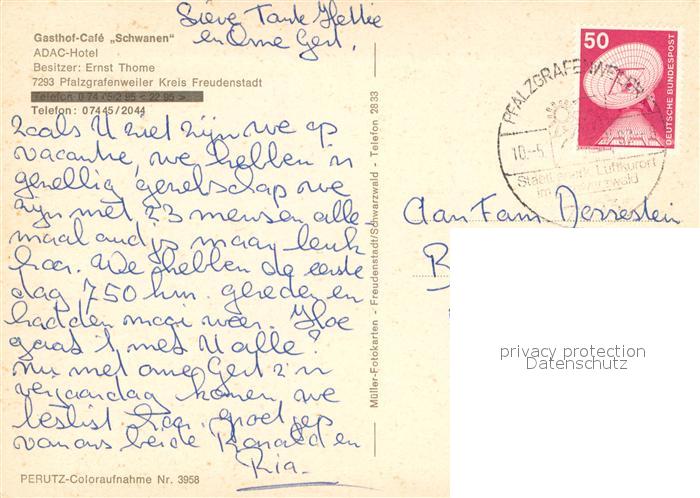 Lieve Tante Hettie
en Ome Gert,
Gasthof-Café „Schwanen“
ADAC-Hotel
Besitzer: Ernst Thome
7293 Pfalzgrafenweiler Kreis Freudenstadt
Telefon 0 74 45/2 95 < 22 95 >
Telefon: 07445/2044
zoals U ziet zijn we op
vacantie, we hebben 'n
gezellig gezelschap we
zijn met 23 mensen alle-
maal oudjes maar leuk
hoor. We hebben de eerste
dag 750 km. gereden en
hadden mooi weer. Hoe
gaat 't met U alle?
Nu met ome Gert z'n
verjaardag komen we
beslist hoor. groetjes
van ons beide Ronald en
Ria.
PERUTZ-Coloraufnahme Nr. 3958
Müller-Fotokarten - Freudenstadt/Schwarzwald - Telefon 2833
50
DEUTSCHE BUNDESPOST
PFALZGRAFENWEILER
10.-5.
Staatl. anerk. Luftkurort
im Schwarzwald
Aan Fam Derrestein
privacy protection
Datenschutz